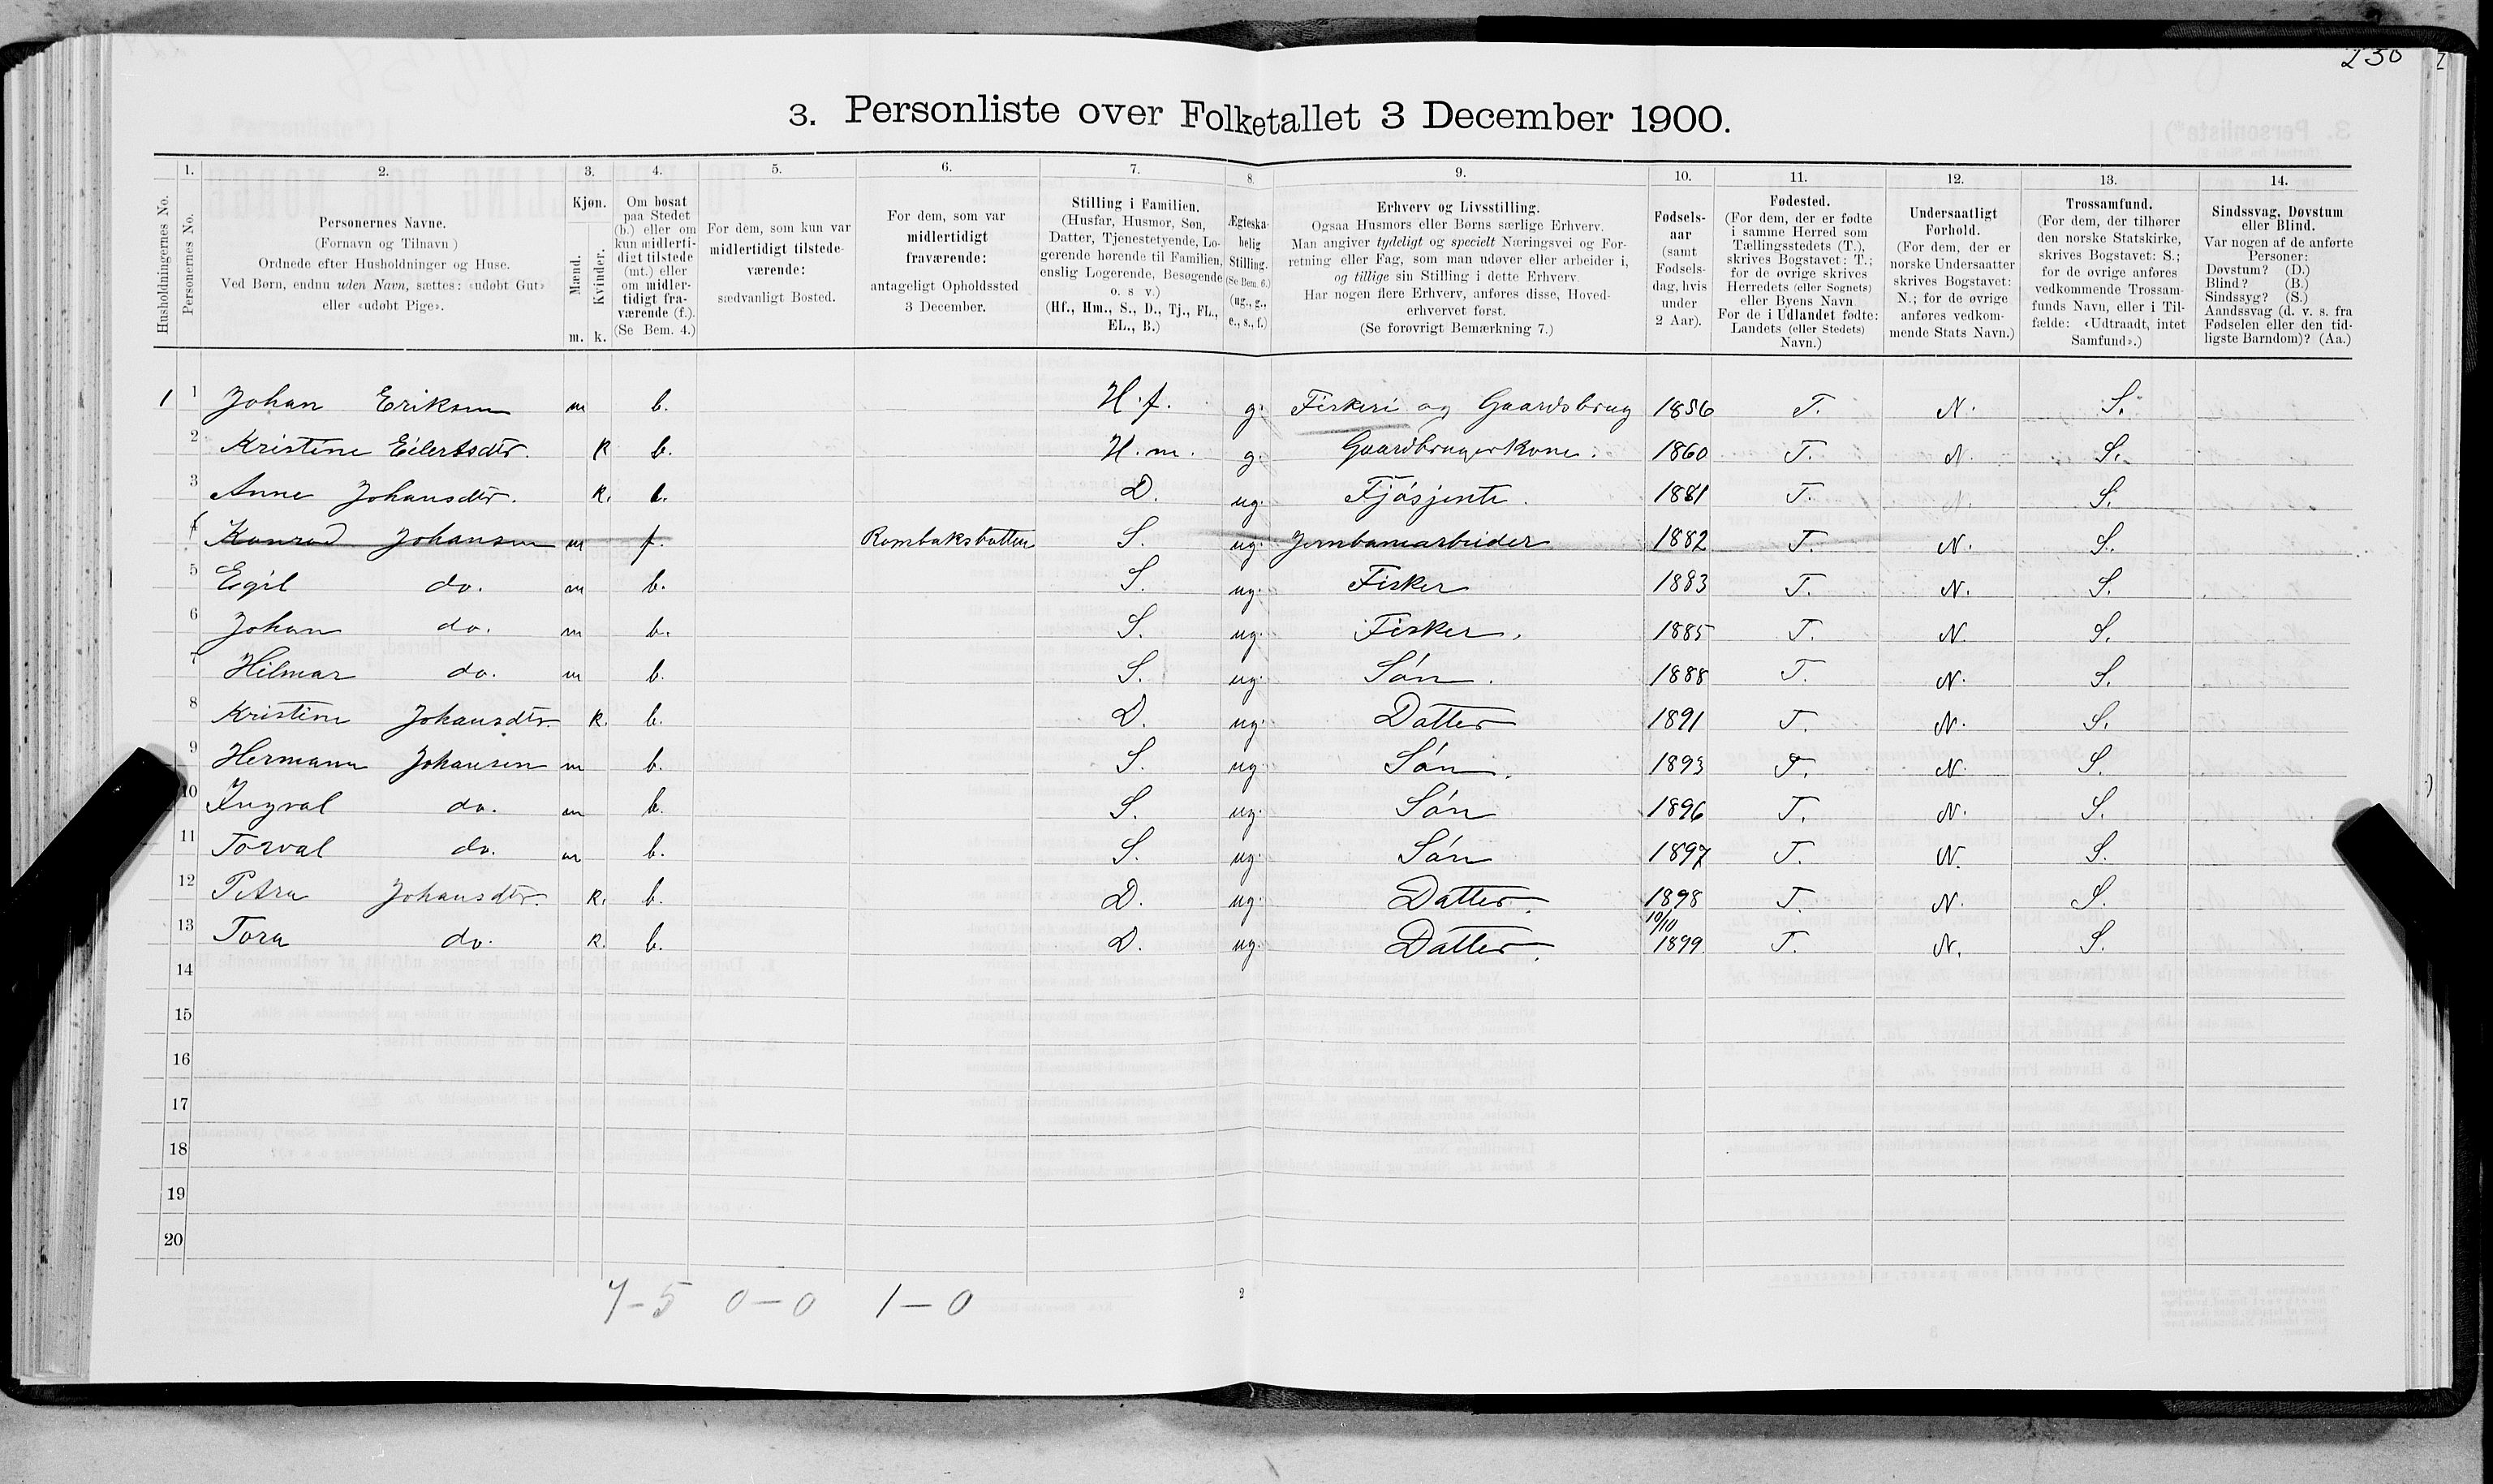 230
3. Personliste over Folketallet 3 December 1900.
Husholdningernes No.
1.
Personernes No.
2.
Personernes Navne.
(Fornavn og Tilnavn)
Ordnede efter Husholdninger og Huse.
Ved Børn, endnu uden Navn, sættes: «udøbt Gut»
eller «udøbt Pige».
3.
Kjøn.
Mænd.
Kvinder.
m. k.
4.
Om bosat
paa Stedet
(b.) eller om
kun midlerti-
digt tilstede
(mt.) eller
om midler-
tidigt fra-
værende (f.).
(Se Bem. 4.)
5.
For dem, som kun var
midlertidigt tilstede-
værende:
sædvanligt Bosted.
6.
For dem, som var
midlertidigt
fraværende:
antageligt Opholdssted
3 December.
7.
Stilling i Familien.
(Husfar, Husmor, Søn,
Datter, Tjenestetyende, Lo-
gerende hørende til Familien,
enslig Logerende, Besøgende
o. s v.)
(Hf., Hm., S., D., Tj., FL.,
EL., B.)
8.
Ægteska-
belig
Stilling.
(Se Bem. 6.)
(ug., g.,
e., s., f.)
9.
Erhverv og Livsstilling.
Ogsaa Husmors eller Børns særlige Erhverv.
Man angiver tydeligt og specielt Næringsvei og For-
retning eller Fag, som man udøver eller arbeider i,
og tillige sin Stilling i dette Erhverv.
Har nogen flere Erhverv, anføres disse, Hoved-
erhvervet først.
(Se forøvrigt Bemærkning 7.)
10.
Fødsels-
aar
(samt
Fødsels-
dag, hvis
under
2 Aar).
11.
Fødested.
(For dem, der er fødte
i samme Herred som
Tællingsstedets (T.),
skrives Bogstavet: T.;
for de øvrige skrives
Herredets (eller Sognets)
eller Byens Navn
For de i Udlandet fødte:
Landets (eller Stedets)
Navn.)
12.
Undersaatligt
Forhold.
(For dem, der er
norske Undersaatter
skrives Bogstavet:
N.; for de øvrige
anføres vedkom-
mende Stats Navn.)
13.
Trossamfund.
(For dem, der tilhører
den norske Statskirke,
skrives Bogstavet: S.;
for de øvrige anføres
vedkommende Trossam-
funds Navn, eller i Til-
fælde: «Udtraadt, intet
Samfund».)
14.
Sindssvag, Døvstum
eller Blind.
Var nogen af de anførte
Personer:
Døvstum? (D.)
Blind? (B.)
Sindssyg? (S.)
Aandssvag (d. v. s. fra
Fødselen eller den tid-
ligste Barndom)? (Aa.)
1 1 Johan Eriksen m b. H.f. g. Fiskeri og Gaardsbrug 1856 T. N. S.
2 Kristine Eilertsdtr. k b. H.m. g. Gaardbrugerkone. 1860 T. N. S.
3 Anne Johansdtr. k. b. D. ug. Fjøsjente. 1881 T. N. S.
4 Konrad Johansen m f. Rombaksbotten S. ug. Jernbanearbeider 1882 T. N. S.
5 Egil do. m b. S. ug. Fisker 1883 T. N. S.
6 Johan do. m b. S. ug. Fisker. 1885 T. N. S.
7 Hilmar do. m b. S. ug. Søn. 1888 T. N. S.
8 Kristine Johansdtr. k. b. D. ug. Datter 1891 T. N. S.
9 Hermann Johansen m b. S. ug. Søn. 1893 T. N. S.
10 Ingval do. m b. S. ug. Søn 1896 T. N. S.
11 Torval do. m b. S. ug. Søn 1897 T. N. S.
12 Petra Johansdtr. k. b. D. ug. Datter. 1898 T. N. S.
13 Tora do. k. b. D. ug. Datter. 10/10 1899 T. N. S.
14
15
16
17
18
19
20
7-5 0-0 1-0
2